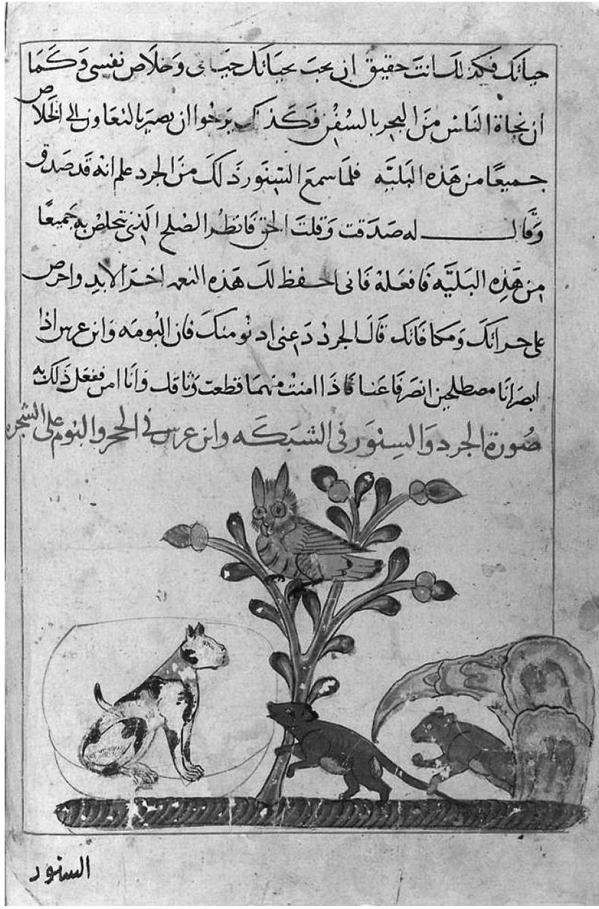 حياتك فكذلك انت حقيق ان يجب بحياتك حياتي وخلاص نفسي وكما
ان نجاة الناس من البحر بالسفن وكذلك يرجوا ان يصير بالتعاون الى الخلاص
جميعا من هذه البليه فلما سمع السنور ذلك من الجرد علم انه قد صدق
وقال له صدقت وقلت الحق فانظر الصلح الذي نتخلص به جميعا
من هذه البليه فافعله فانى احفظ لك هذه النعمه اخر الابد واحرص
على جزائك ومكافاتك قال الجرد دعنى ادنو منك فان البومه وابن عرس اذا
ابصرانا مصطلحين انصرفا عنا فاذا امنت منهما قطعت وثاقك وانا امن ففعل ذلك به
صورة الجرد والسنور فى الشبكه وابن عرس فى الحجر والبوم على الشجره
السنور